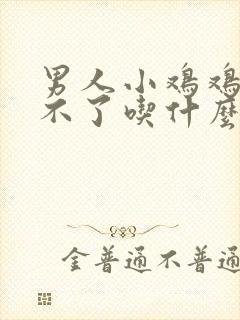 男人小鸡鸡
不了喫什麼
金普通不普通